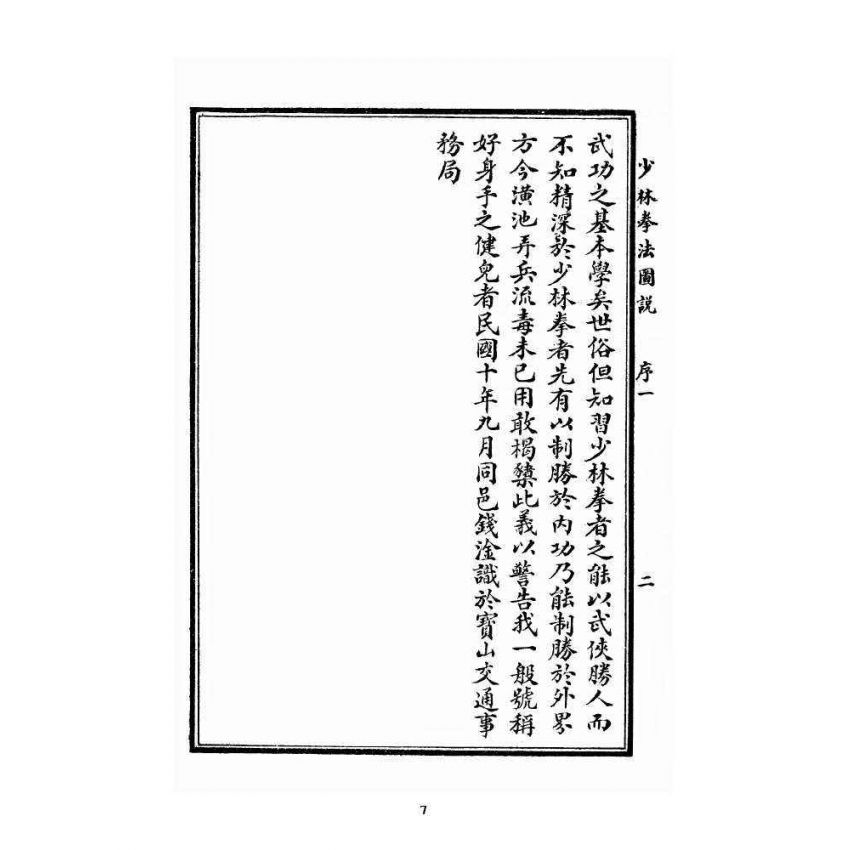 少林拳法圖説 序一 二
武功之基本學矣世俗但知習少林拳者之能以武俠勝人而
不知精深於少林拳者先有以制勝於内功乃能制勝於外界
方今潢池弄兵流毒未已用敢楬櫫此義以警告我一般號稱
好身手之健兒者民國十年九月同邑錢淦識於寶山交通事
務局
7